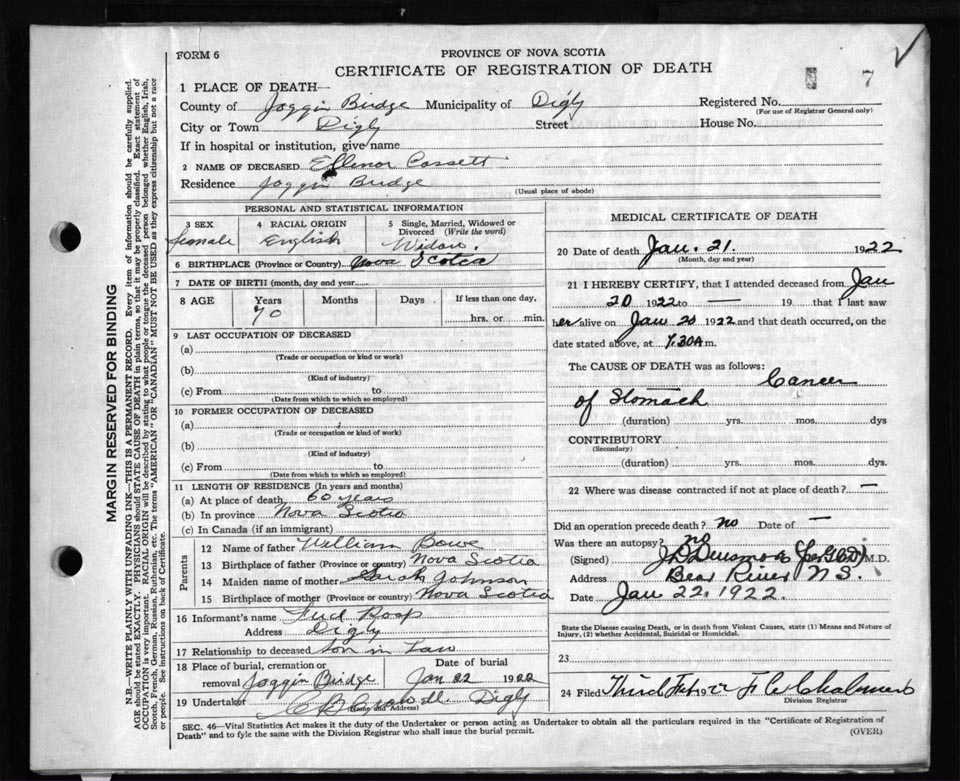 FORM 6
PROVINCE OF NOVA SCOTIA
CERTIFICATE OF REGISTRATION OF DEATH
7
1 PLACE OF DEATH—
County of Joggin Bridge Municipality of Digby Registered No.
(For use of Registrar General only)
City or Town Digby Street House No.
If in hospital or institution, give name
2 NAME OF DECEASED Ellenor Cossett
Residence Joggin Bridge
(Usual place of abode)
PERSONAL AND STATISTICAL INFORMATION
3 SEX
female
4 RACIAL ORIGIN
English
5 Single, Married, Widowed or
Divorced (Write the word)
Widow.
6 BIRTHPLACE (Province or Country) Nova Scotia
7 DATE OF BIRTH (month, day and year)
8 AGE Years Months Days If less than one day,
70 hrs. or min.
9 LAST OCCUPATION OF DECEASED
(a)
(Trade or occupation or kind of work)
(b)
(Kind of industry)
(c) From to
(Date from which to which so employed)
10 FORMER OCCUPATION OF DECEASED
(a)
(Trade or occupation or kind of work)
(b)
(Kind of industry)
(c) From to
(Date from which to which so employed)
11 LENGTH OF RESIDENCE (In years and months)
(a) At place of death 60 years
(b) In province Nova Scotia
(c) In Canada (if an immigrant)
Parents
12 Name of father William Bowe
13 Birthplace of father (Province or country) Nova Scotia
14 Maiden name of mother Sarah Johnson
15 Birthplace of mother (Province or country) Nova Scotia
16 Informant's name Fred Roop
Address Digby
17 Relationship to deceased son in Law
18 Place of burial, cremation or Date of burial
removal Joggin Bridge Jan 22 1922
19 Undertaker Digby
(Name and Address)
MEDICAL CERTIFICATE OF DEATH
20 Date of death Jan. 21. 1922
(Month, day and year)
21 I HEREBY CERTIFY, that I attended deceased from Jan
20 1922 to — 19 that I last saw
her alive on Jan 20 1922 and that death occurred, on the
date stated above, at 7.30 A m.
The CAUSE OF DEATH was as follows:
Cancer
of Stomach
(duration) yrs. mos. dys
CONTRIBUTORY
(Secondary)
(duration) yrs. mos. dys.
22 Where was disease contracted if not at place of death? —
Did an operation precede death? no Date of —
Was there an autopsy? no
(Signed) M.D.
Address Bear River N S.
Date Jan 22, 1922.
State the Disease causing Death, or in death from Violent Causes, state (1) Means and Nature of
Injury, (2) whether Accidental, Suicidal or Homicidal.
23
24 Filed Third
Division Registrar
SEC. 46—Vital Statistics Act makes it the duty of the Undertaker or person acting as Undertaker to obtain all the particulars required in the "Certificate of Registration of
Death" and to fyle the same with the Division Registrar who shall issue the burial permit.
(OVER)
MARGIN RESERVED FOR BINDING
N.B.—WRITE PLAINLY WITH UNFADING INK—THIS IS A PERMANENT RECORD. Every item of information should be carefully supplied.
AGE should be stated EXACTLY. PHYSICIANS should STATE CAUSE OF DEATH in plain terms, so that it may be properly classified. Exact statement of
OCCUPATION is very important. RACIAL ORIGIN will be described by stating to what people or tongue the deceased person belonged whether English, Irish,
Scotch, French, German, Russian, Ruthenian, etc. The terms "AMERICAN" OR "CANADIAN" MUST NOT BE USED as they express citizenship but not a race
or people. See instructions on back of Certificate.